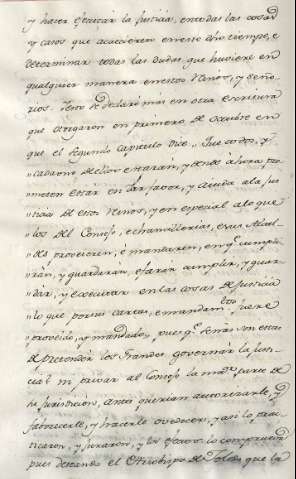 y hacer executar la Justicia, en todas las cosas
y casos que acaecieren en este dho tiempo, e
determinar todas las dudas que huviere en
qualquier manera en estos Reinos, y Seño-
rios. Esto se declaró más en otra escritura
que otorgaron en primero de Octubre en
que el segundo capitulo dice "Que todos, y
"cada uno de ellos estarán, y desde ahora pro-
"meten estar en dar favor, y aiuda a la Jus-
"ticia de estos Reinos, y en especial a lo que
"los del Consejo, e chancillerias, e sus Alcal-
"des proveieren, e mandaren, en q.e cumpli-
"rán, y guardarán, e farán cumplir, y guar-
"dar, y executar en las cosas de Justicia
"lo que por sus cartas, e mandam.tos fuere
"proveido, y mandado, pues q.e
de pretender los Grandes governar la Jus-
ticia ni privar al Consejo la may.r parte de
su jurisdicion, antes querian autorizarle, y
favorecerle, y hacerle ovedecer, y asi lo prac-
ticaron, y juraron, y los efectos lo comprueban
pues deseando el Arzobispo de Toledo que la